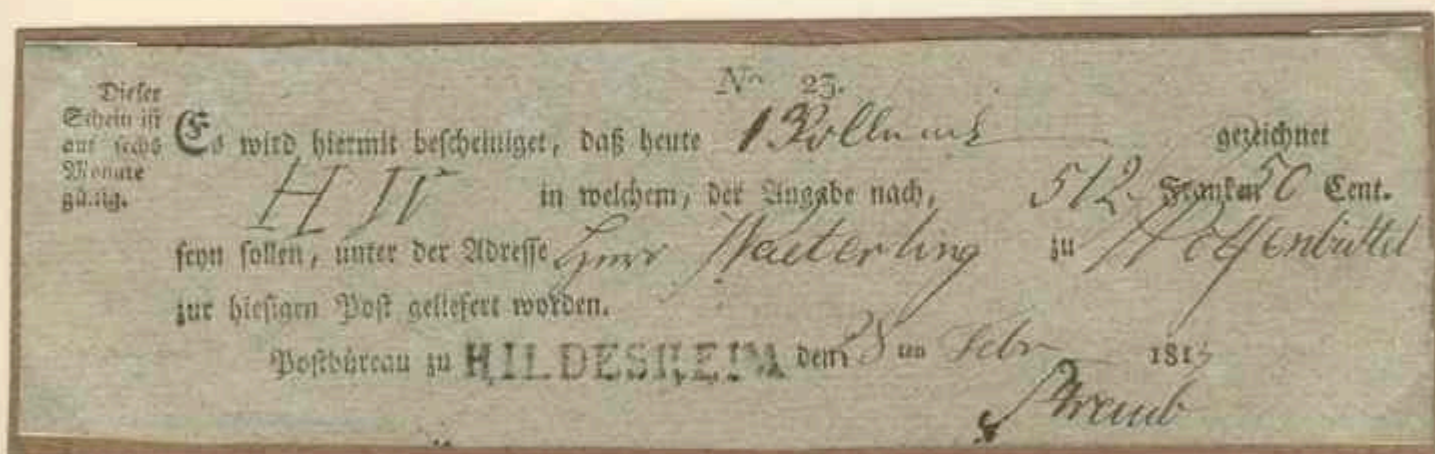 No 23.
Dieser
Schein ist
auf sechs
Monate
gültig.
Es wird hiermit bescheiniget, daß heute 1 gezeichnet
H W in welchem, der Angabe nach, 512 Franken 50 Cent.
seyn sollen, unter der Adresse zu Wolfenbüttel
zur hiesigen Post geliefert worden.
Postbüreau zu HILDESHEIM den ten Febr 181